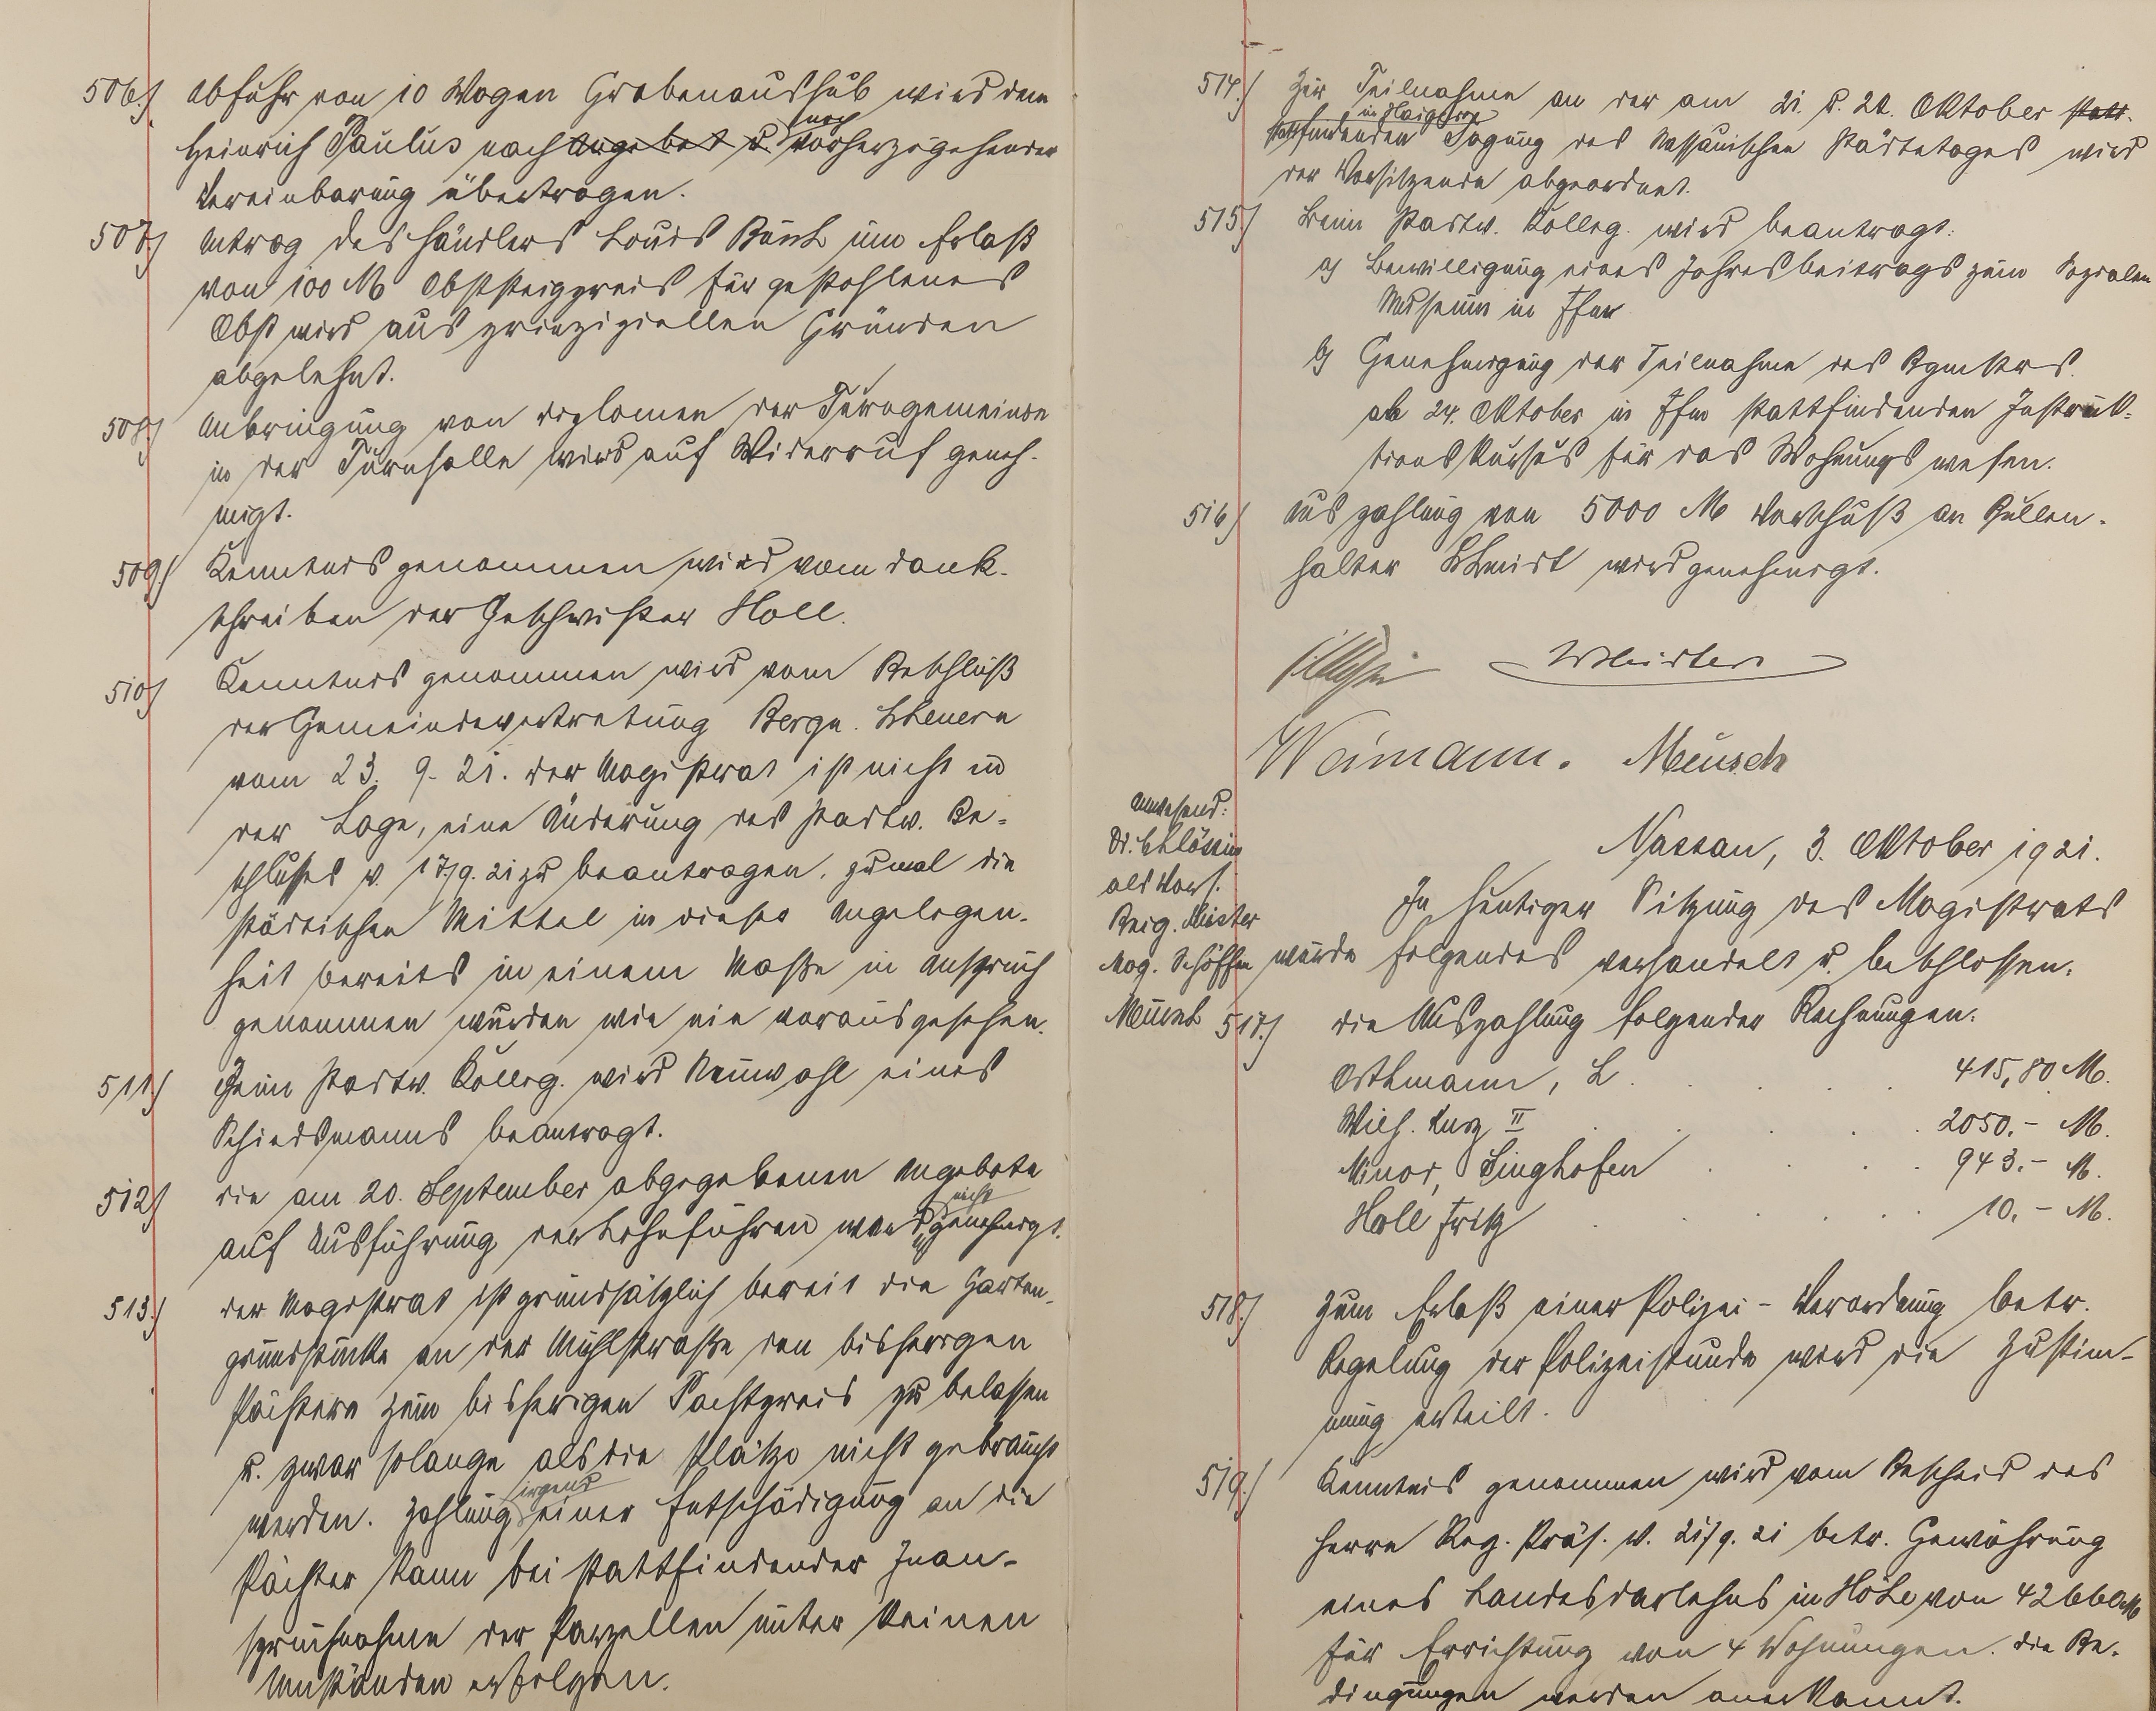 506.) Abfuhr von 10 Wagen Grabenaushub wird dem
Heinrich Paulus nach Angebot u. nach vorherzugehender
Vereinbarung übertragen.
507.) Antrag des Händlers Louis um Erlaß
von 100 M Obststeigpreis für gestohlenes
Obst wird aus prinzipiellen Gründen
abgelehnt.
508.) Anbringung von Diplomen der Turngemeinde
in der Turnhalle wird auf Widerruf geneh-
migt.
509.) Kenntnis genommen wird vom Dank-
schreiben der Geschwister Holl.
510.) Kenntnis genommen wird vom Beschluß
der Gemeindevertretung Bergn. Scheuern
vom 23. 9. 21. Der Magistrat ist nicht in
der Lage, eine Änderung des Stadtv. Be-
schlusses v. 17/9. 21 zu beantragen, zumal die
städtischen Mittel in dieser Angelegen-
heit bereits in einem Maße in Anspruch
genommen wurden wie nie vorausgesehen.
511.) Beim Stadtv. Kolleg. wird Neuwahl eines
Schiedsmanns beantragt.
512.) Die am 20. September abgegebenen Angebote
nicht
auf Ausführung der Lohnfuhren werd. genehmigt.
513.) Der Magistrat ist grundsätzlich bereit die Garten-
grundstücke an der Mühlstraße den bisherigen
Pächtern zum bisherigen Pachtpreis zu belassen
u. zwar solange als die Plätze nicht gebraucht
irgend
werden. Zahlung einer Entschädigung an die
Pächter kann bei stattfindender Inan-
spruchnahme der Parzellen unter keinen
Umständen erfolgen.
514.) Zur Teilnahme an der am 21. u. 22. Oktober statt-
in Haiger
stattfindenden Tagung des Nassauischen Städtetages wird
der Vorsitzende abgeordnet.
515.) Beim Stadtv. Kolleg. wird beantragt:
a) Bewilligung eines Jahresbeitrags zum Sozialen
Museum in Ffm
b) Genehmigung der Teilnahme des Bgmstrs.
ab 24. Oktober in Ffm stattfindenden Instruk-
tionskursus für das Wohnungswesen.
516.) Auszahlung von 5000 M Vorschuß an Bullen-
halter Schmidt wird genehmigt.
Weimann. Meusch
Anwesend:
Dr. Schlössin
als Vors.
Beig. Meister
Mag. Schöffen
Meusch
Nassau, 3. Oktober 1921.
In heutiger Sitzung des Magistrats
wurde folgendes verhandelt u. beschlossen.
517.) Die Auszahlung folgender Rechnungen.
Orthmann, L. 415,80 M.
Wilh. Kurz II 2050.- M.
Minor, Singhofen 943.- M.
Holl Fritz 10.- M.
518.) Zum Erlaß einer Polizei-Verordnung betr.
Regelung der Polizeistunde wird die Zustim-
mung erteilt.
519.) Kenntnis genommen wird vom Bescheid des
Herrn Reg. Präs. v. 21/9. 21 betr. Gewährung
eines Landesdarlehns in Höhe von 42660 M
für Errichtung von 4 Wohnungen. Die Be-
dingungen werden anerkannt.